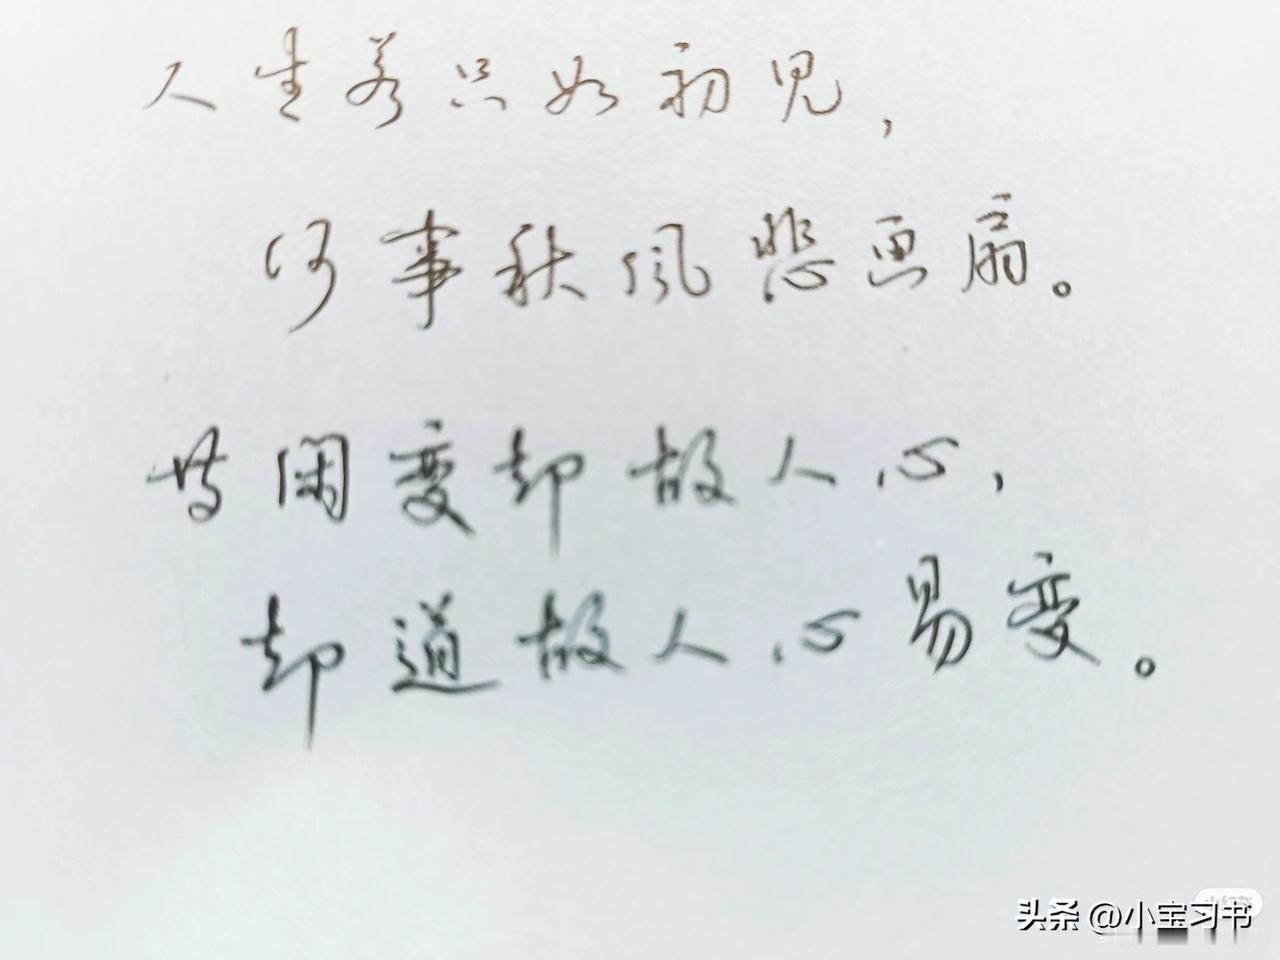 人生若只如初见，
何事秋风悲画扇。
等闲变却故人心，
却道故人心易变。
头条 @小宝习书